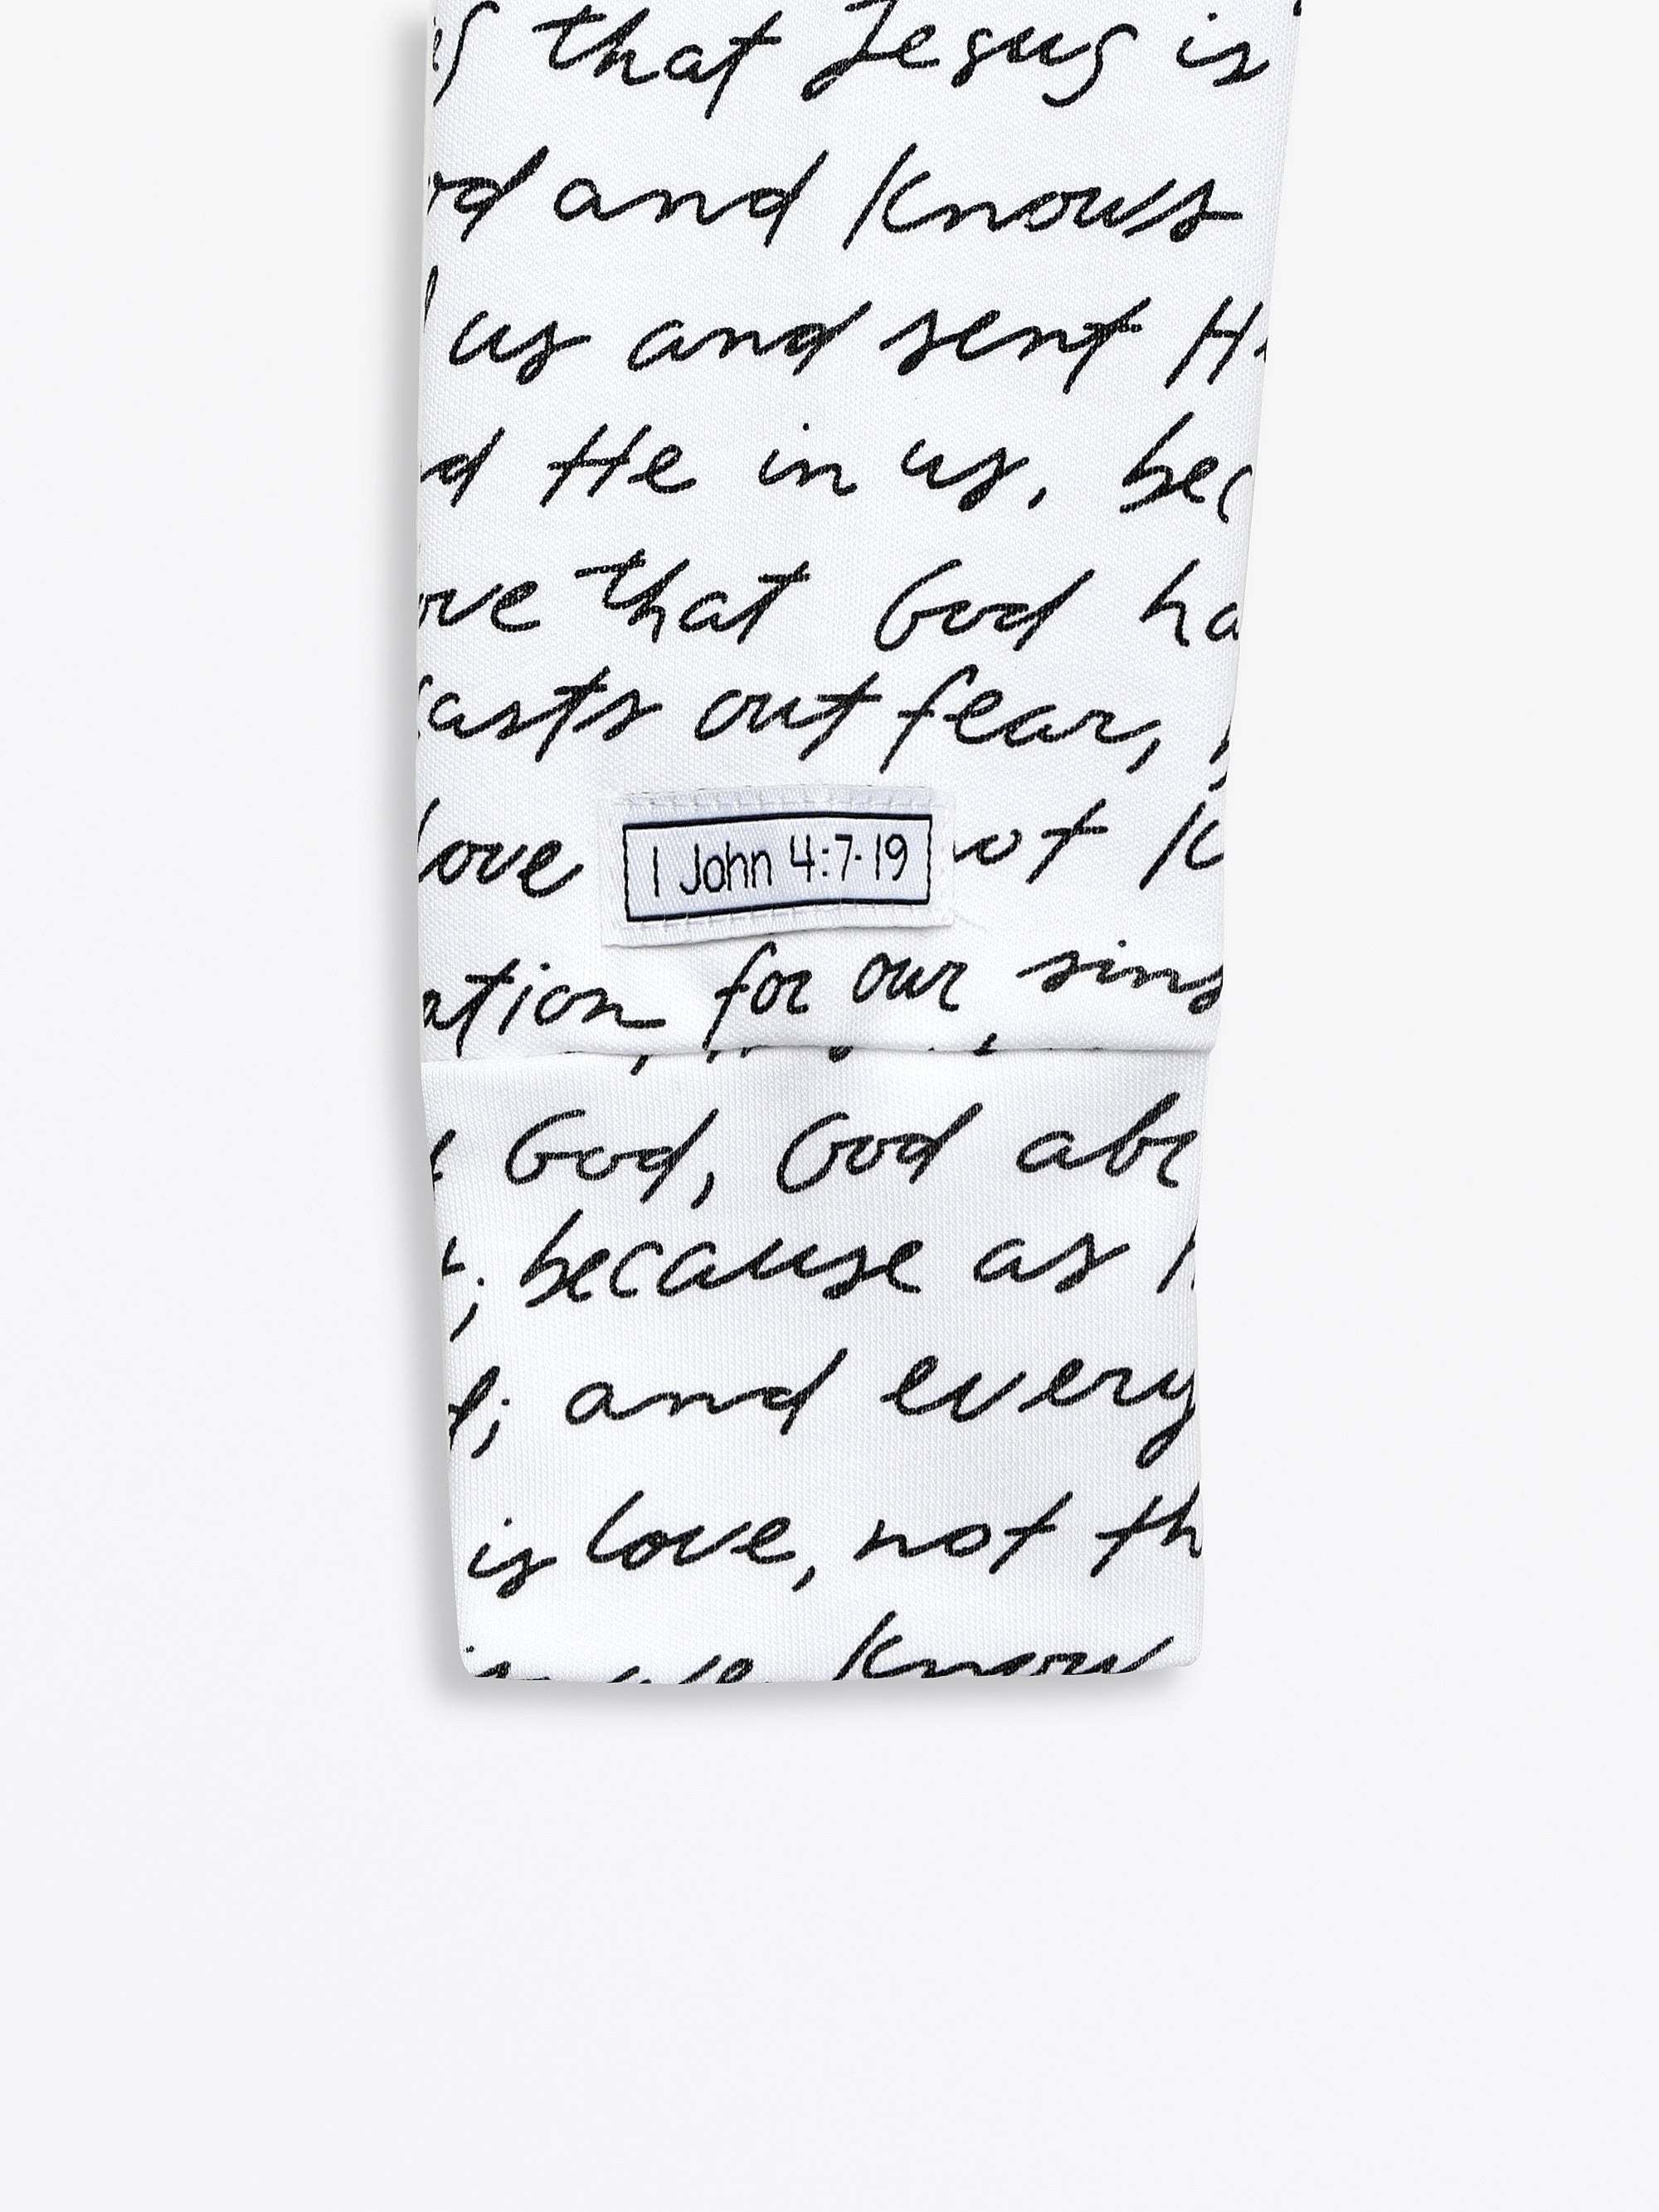 that Jesus is
and knows
us and sent
He in us, bec
that God ha
asts out fear,
love 1 John 4:7-19 not K
ation for our sins
God, God abi
; because as
; and every
is love, not th
we know